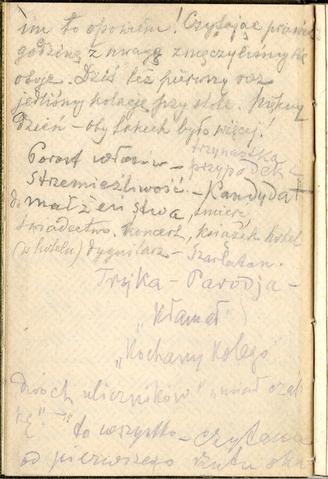 im to opowiem! Czytając prawie
godzinę z uwagą zmęczyliśmy się
oboje. Dziś też pierwszy raz
jedliśmy kolację przy stole. Piękny
dzień – oby takich było więcej!
Porost włosów – trzynastka
przypadek –
Strzemieźliwość. – Kandydat
do małżeństwa, śmierć,
świadectwo. Koncert, książek hotel
(w hotelu) dygnitarz – Szarlatan.
Trójka – Parodja –
"Kłamał"
"Kochany Kolego"
Dwóch uliczników "miał czat
kę" –
to wszystko – czytane
od pierwszego rzutu oka